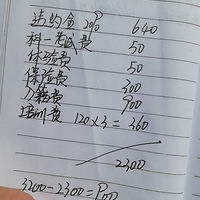 违约金 20% 640
科一考试费 50
体检费 50
保险费 300
籍费 900
培训费 120×3=360
2300
3200-2300=900